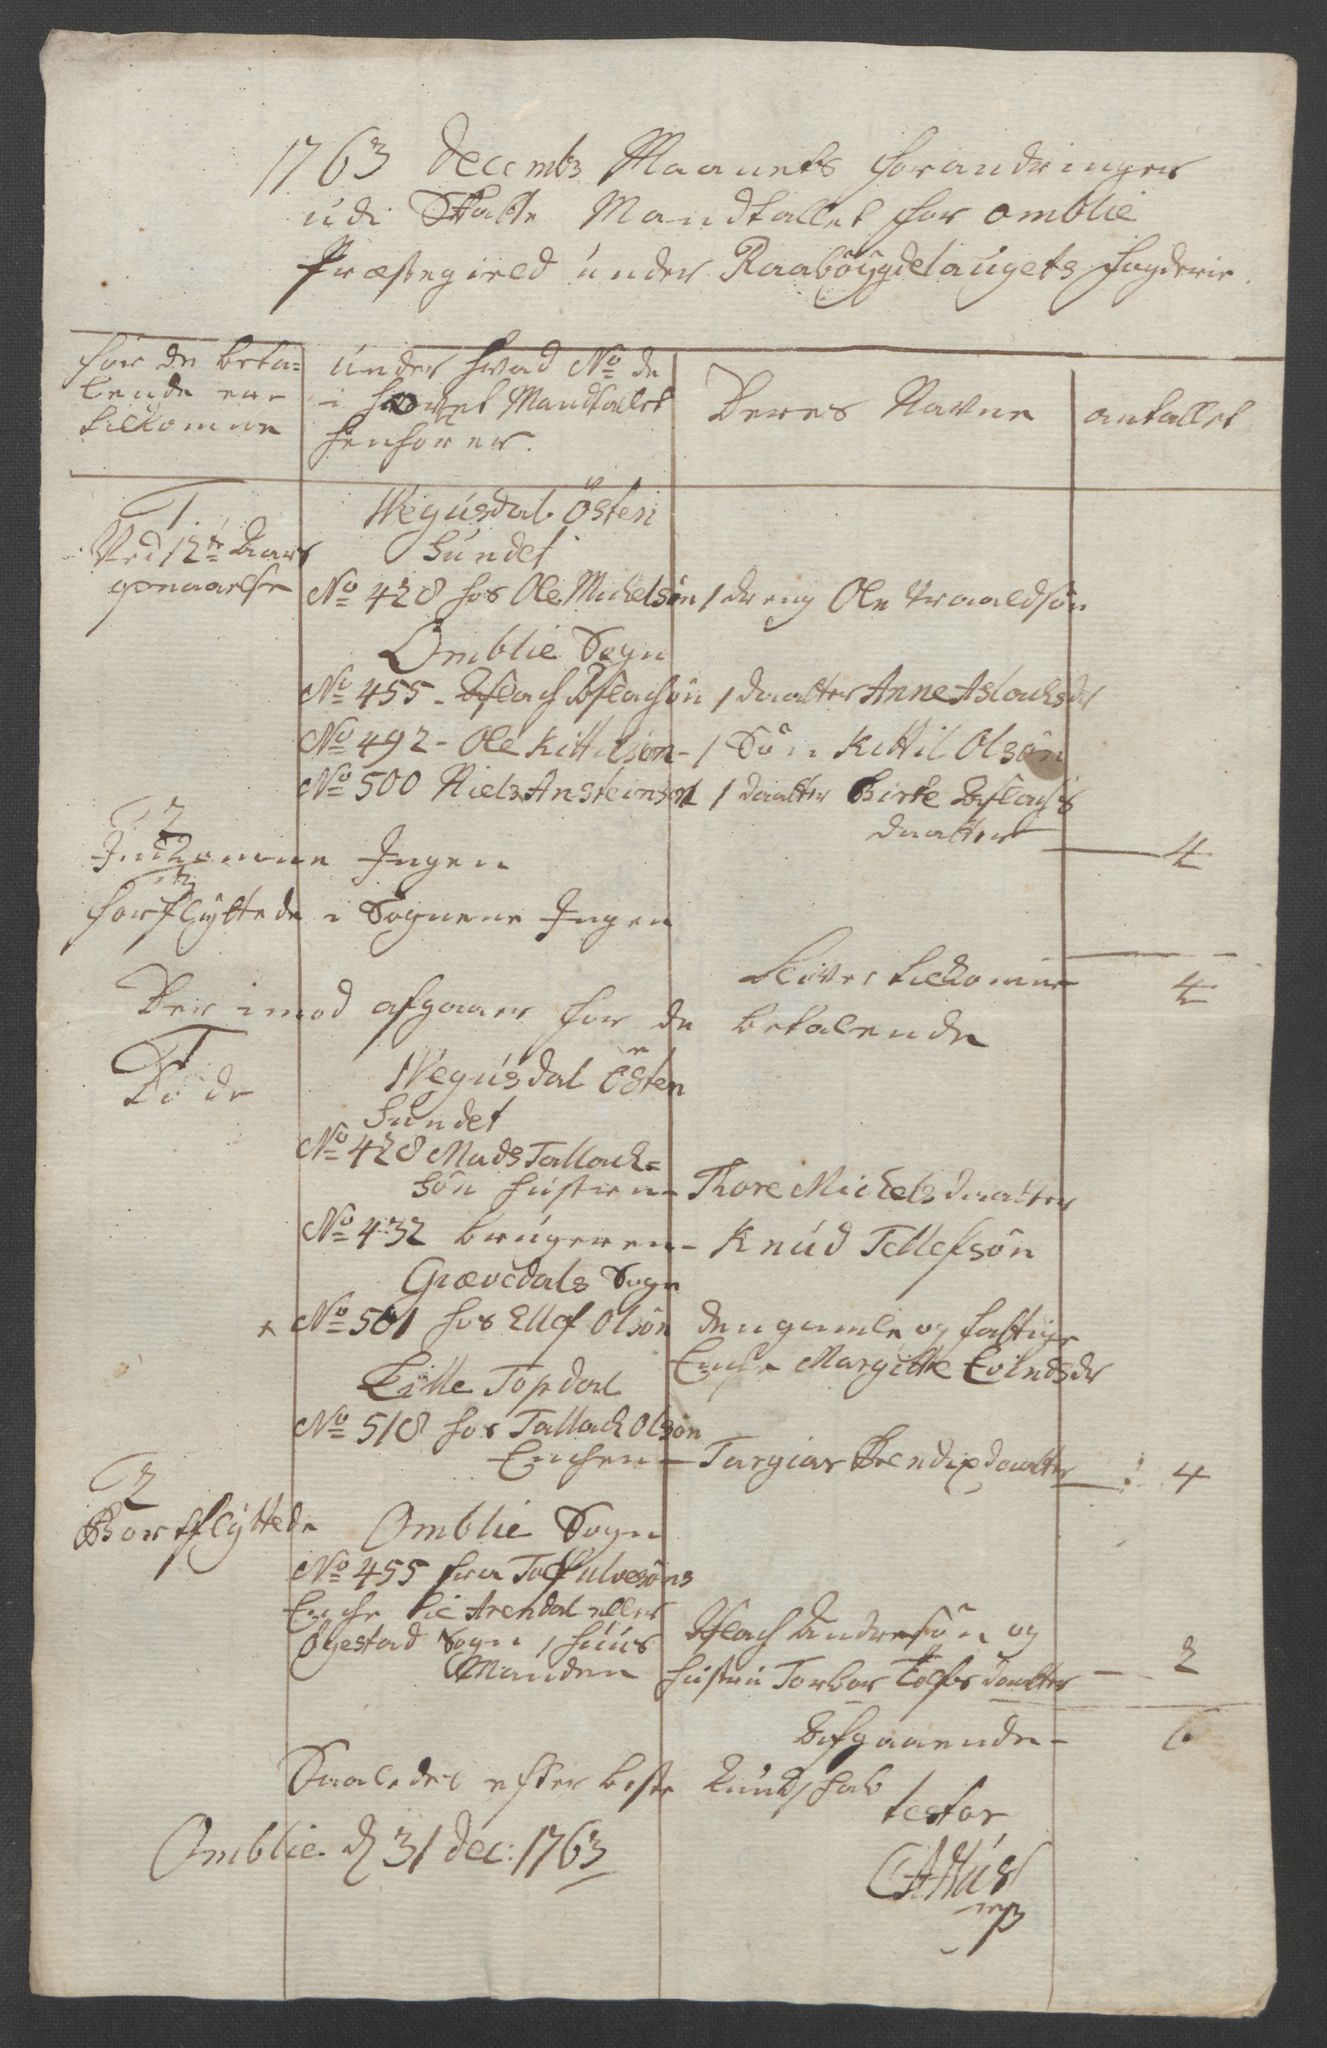 1763 Decembs Maanets forandringer
udi Skatte Mandtallet for Omblie
Præstegield under Raabøygdelaugets fogderie.
for de beta-
lende ere
tilkomne
under hvad No de
i hovet Mandtallet
henhører.
Deres Navne
antallet
1
Ved 12te Aars
opnaaelse
Wegusdal Østen
Sundet
No 428 hos Ole Michelsøn 1 dreng Ole Vraaldsøn
Omblie Sogn
No 455 - Aslach Aslachsøn 1 daatter Anne Aslachsdr
No 492 - Ole Kittelsøn - 1 Søn Kittil Olsøn
No 500 Niels Ansteinsøn 1 daatter Birte Aslachs
daatter
4
2
Indkomne Ingen
3
forflyttede i Sognene Ingen
bliver tilkomne 4
Der imod afgaaer for de betalende
1
Døde
Wegusdal Østen
Sundet
No 428 Mads Tallach-
søn hustruen - Thore Michelsdaatter
No 432 brugeren - Knud Tellefsøn
Grævedals Sogn
No 501 hos Ellef Olsøn den gamle og fattige
Enche Margitte Evindsdr
Lille Topdal
No 518 hos Tallach Olsøn
Enchen - Targiar Bendixdaatter : 4
2
Bortflyttede
Omblie Sogn
No 455 fra Tolf Ulvesøns
Enche til Arendal eller
Øyestad Sogn, huus
Manden
Aslach Andresøn og
hustru Torbor Tolfsdaatter - 2
Afgaaende - 6
Saaledes efter beste Kundskab
testor
Omblie d 31 Dec: 1763